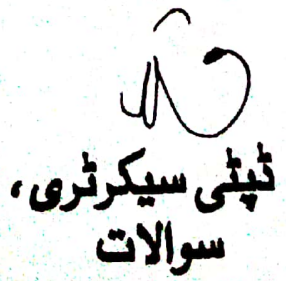 ڈپٹی سیکرٹری،
سوالات